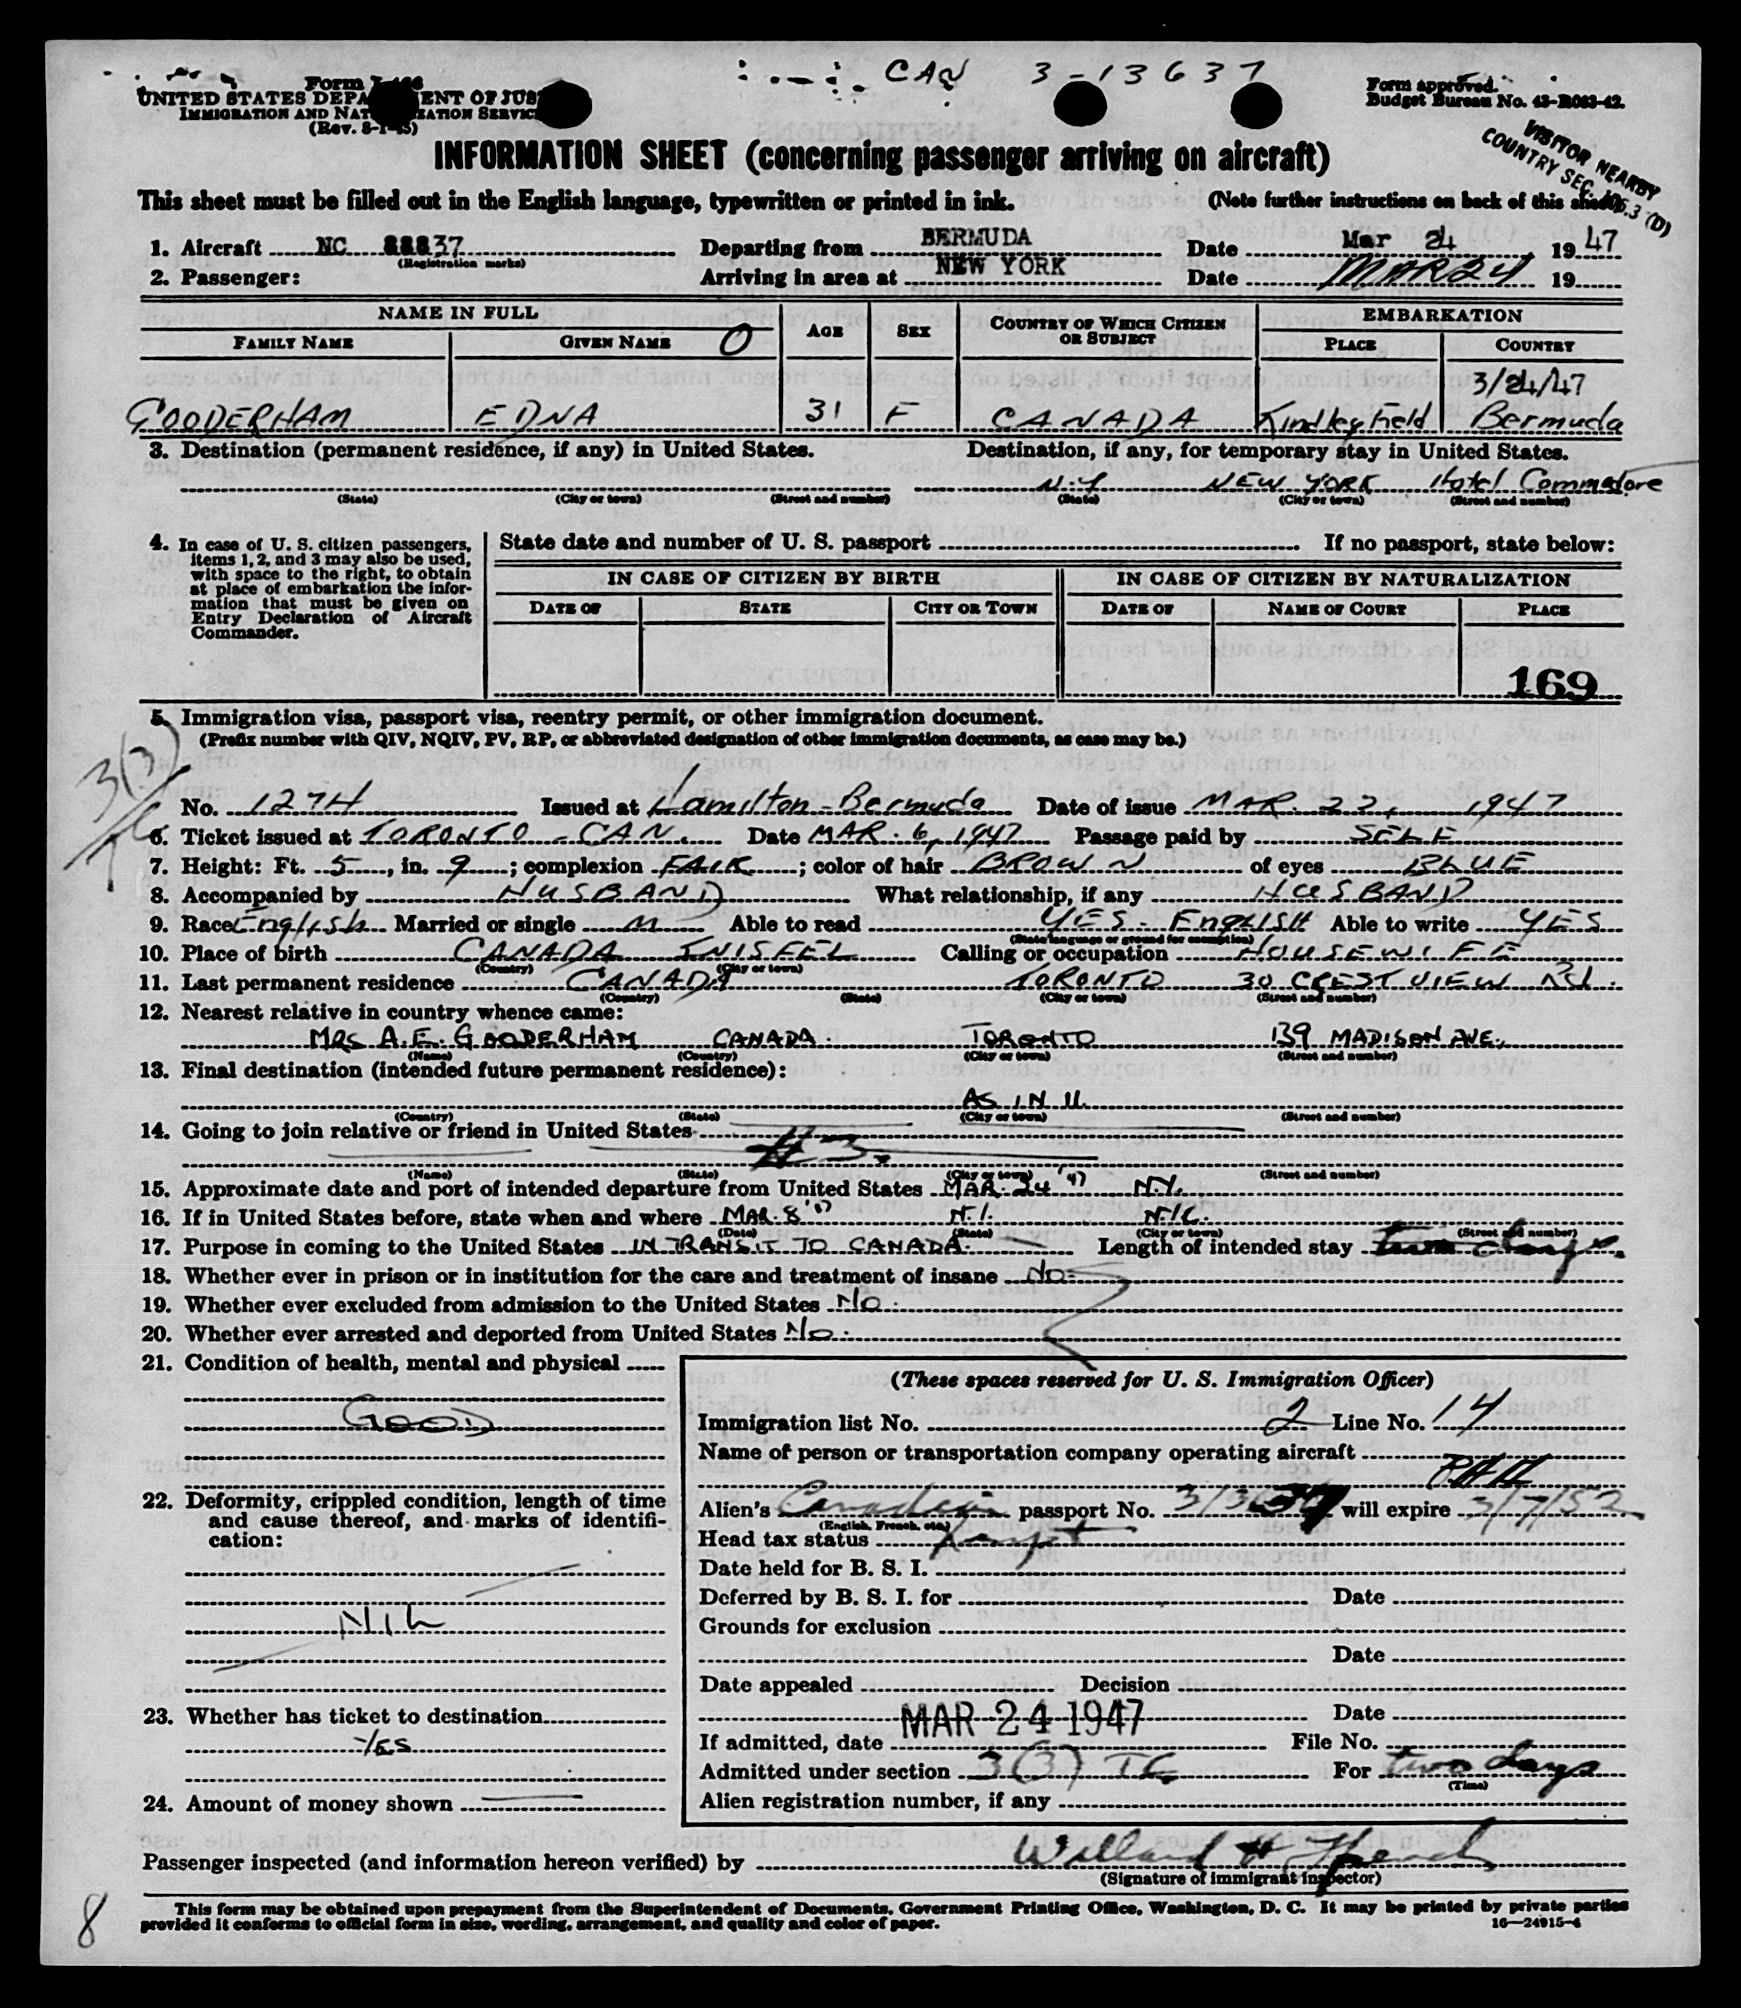 CAN 3-13637
Form I-466
UNITED STATES DEPARTMENT OF JUSTICE
IMMIGRATION AND NATURALIZATION SERVICE
(Rev. 8-1-45)
Form approved.
Budget Bureau No. 43-R063-42.
VISITOR NEARBY
COUNTRY SEC. 176.3 (D)
INFORMATION SHEET (concerning passenger arriving on aircraft)
This sheet must be filled out in the English language, typewritten or printed in ink. (Note further instructions on back of this sheet)
1. Aircraft NC 88837 Departing from BERMUDA Date Mar 24 1947
(Registration marks)
2. Passenger: Arriving in area at NEW YORK Date MAR 24 19
NAME IN FULL AGE SEX COUNTRY OF WHICH CITIZEN OR SUBJECT EMBARKATION
FAMILY NAME GIVEN NAME O PLACE COUNTRY
3/24/47
GOODERHAM EDNA 31 F CANADA Kindley Field Bermuda
3. Destination (permanent residence, if any) in United States. Destination, if any, for temporary stay in United States.
N.Y NEW YORK Hotel Commodore
(State) (City or town) (Street and number) (State) (City or town) (Street and number)
4. In case of U. S. citizen passengers, items 1, 2, and 3 may also be used, with space to the right, to obtain at place of embarkation the information that must be given on Entry Declaration of Aircraft Commander.
State date and number of U. S. passport If no passport, state below:
IN CASE OF CITIZEN BY BIRTH IN CASE OF CITIZEN BY NATURALIZATION
DATE OF STATE CITY OR TOWN DATE OF NAME OF COURT PLACE
169
5. Immigration visa, passport visa, reentry permit, or other immigration document.
(Prefix number with QIV, NQIV, PV, RP, or abbreviated designation of other immigration documents, as case may be.)
3(3)
No. 1274 Issued at Hamilton - Bermuda Date of issue MAR. 22, 1947
6. Ticket issued at TORONTO - CAN. Date MAR. 6, 1947 Passage paid by SELF
7. Height: Ft. 5, in. 9; complexion FAIR; color of hair BROWN of eyes BLUE
8. Accompanied by HUSBAND What relationship, if any HUSBAND
9. Race English Married or single M Able to read YES - ENGLISH Able to write YES
(State language or ground for exemption)
10. Place of birth CANADA INISFEL Calling or occupation HOUSEWIFE
(Country) (City or town)
11. Last permanent residence CANADA TORONTO 30 CREST VIEW Rd.
(Country) (State) (City or town) (Street and number)
12. Nearest relative in country whence came:
MRS A.E. GOODERHAM CANADA. TORONTO 139 MADISON AVE.
(Name) (Country) (City or town) (Street and number)
13. Final destination (intended future permanent residence):
AS IN 11.
(Country) (State) (City or town) (Street and number)
14. Going to join relative or friend in United States
# 3.
(Name) (State) (City or town) (Street and number)
15. Approximate date and port of intended departure from United States MAR. 24 '47 N.Y.
16. If in United States before, state when and where MAR. 8 '47 N.Y. N.Y.C.
(Date) (State) (City or town) (Street and number)
17. Purpose in coming to the United States IN TRANSIT TO CANADA. Length of intended stay two days.
18. Whether ever in prison or in institution for the care and treatment of insane No.
19. Whether ever excluded from admission to the United States No.
20. Whether ever arrested and deported from United States No.
21. Condition of health, mental and physical
GOOD
22. Deformity, crippled condition, length of time and cause thereof, and marks of identification:
NIL
23. Whether has ticket to destination
Yes
24. Amount of money shown
(These spaces reserved for U. S. Immigration Officer)
Immigration list No. 2 Line No. 14
Name of person or transportation company operating aircraft
PAA
Alien's Canadian passport No. will expire 3/7/52
(English, French, etc.)
Head tax status
Date held for B. S. I.
Deferred by B. S. I. for Date
Grounds for exclusion
Date
Date appealed Decision
Date
If admitted, date MAR 24 1947 File No.
Admitted under section 3(3) For two days
(Time)
Alien registration number, if any
Passenger inspected (and information hereon verified) by Willard H French
(Signature of immigrant inspector)
8
This form may be obtained upon prepayment from the Superintendent of Documents, Government Printing Office, Washington, D. C. It may be printed by private parties
provided it conforms to official form in size, wording, arrangement, and quality and color of paper. 16—24915-4